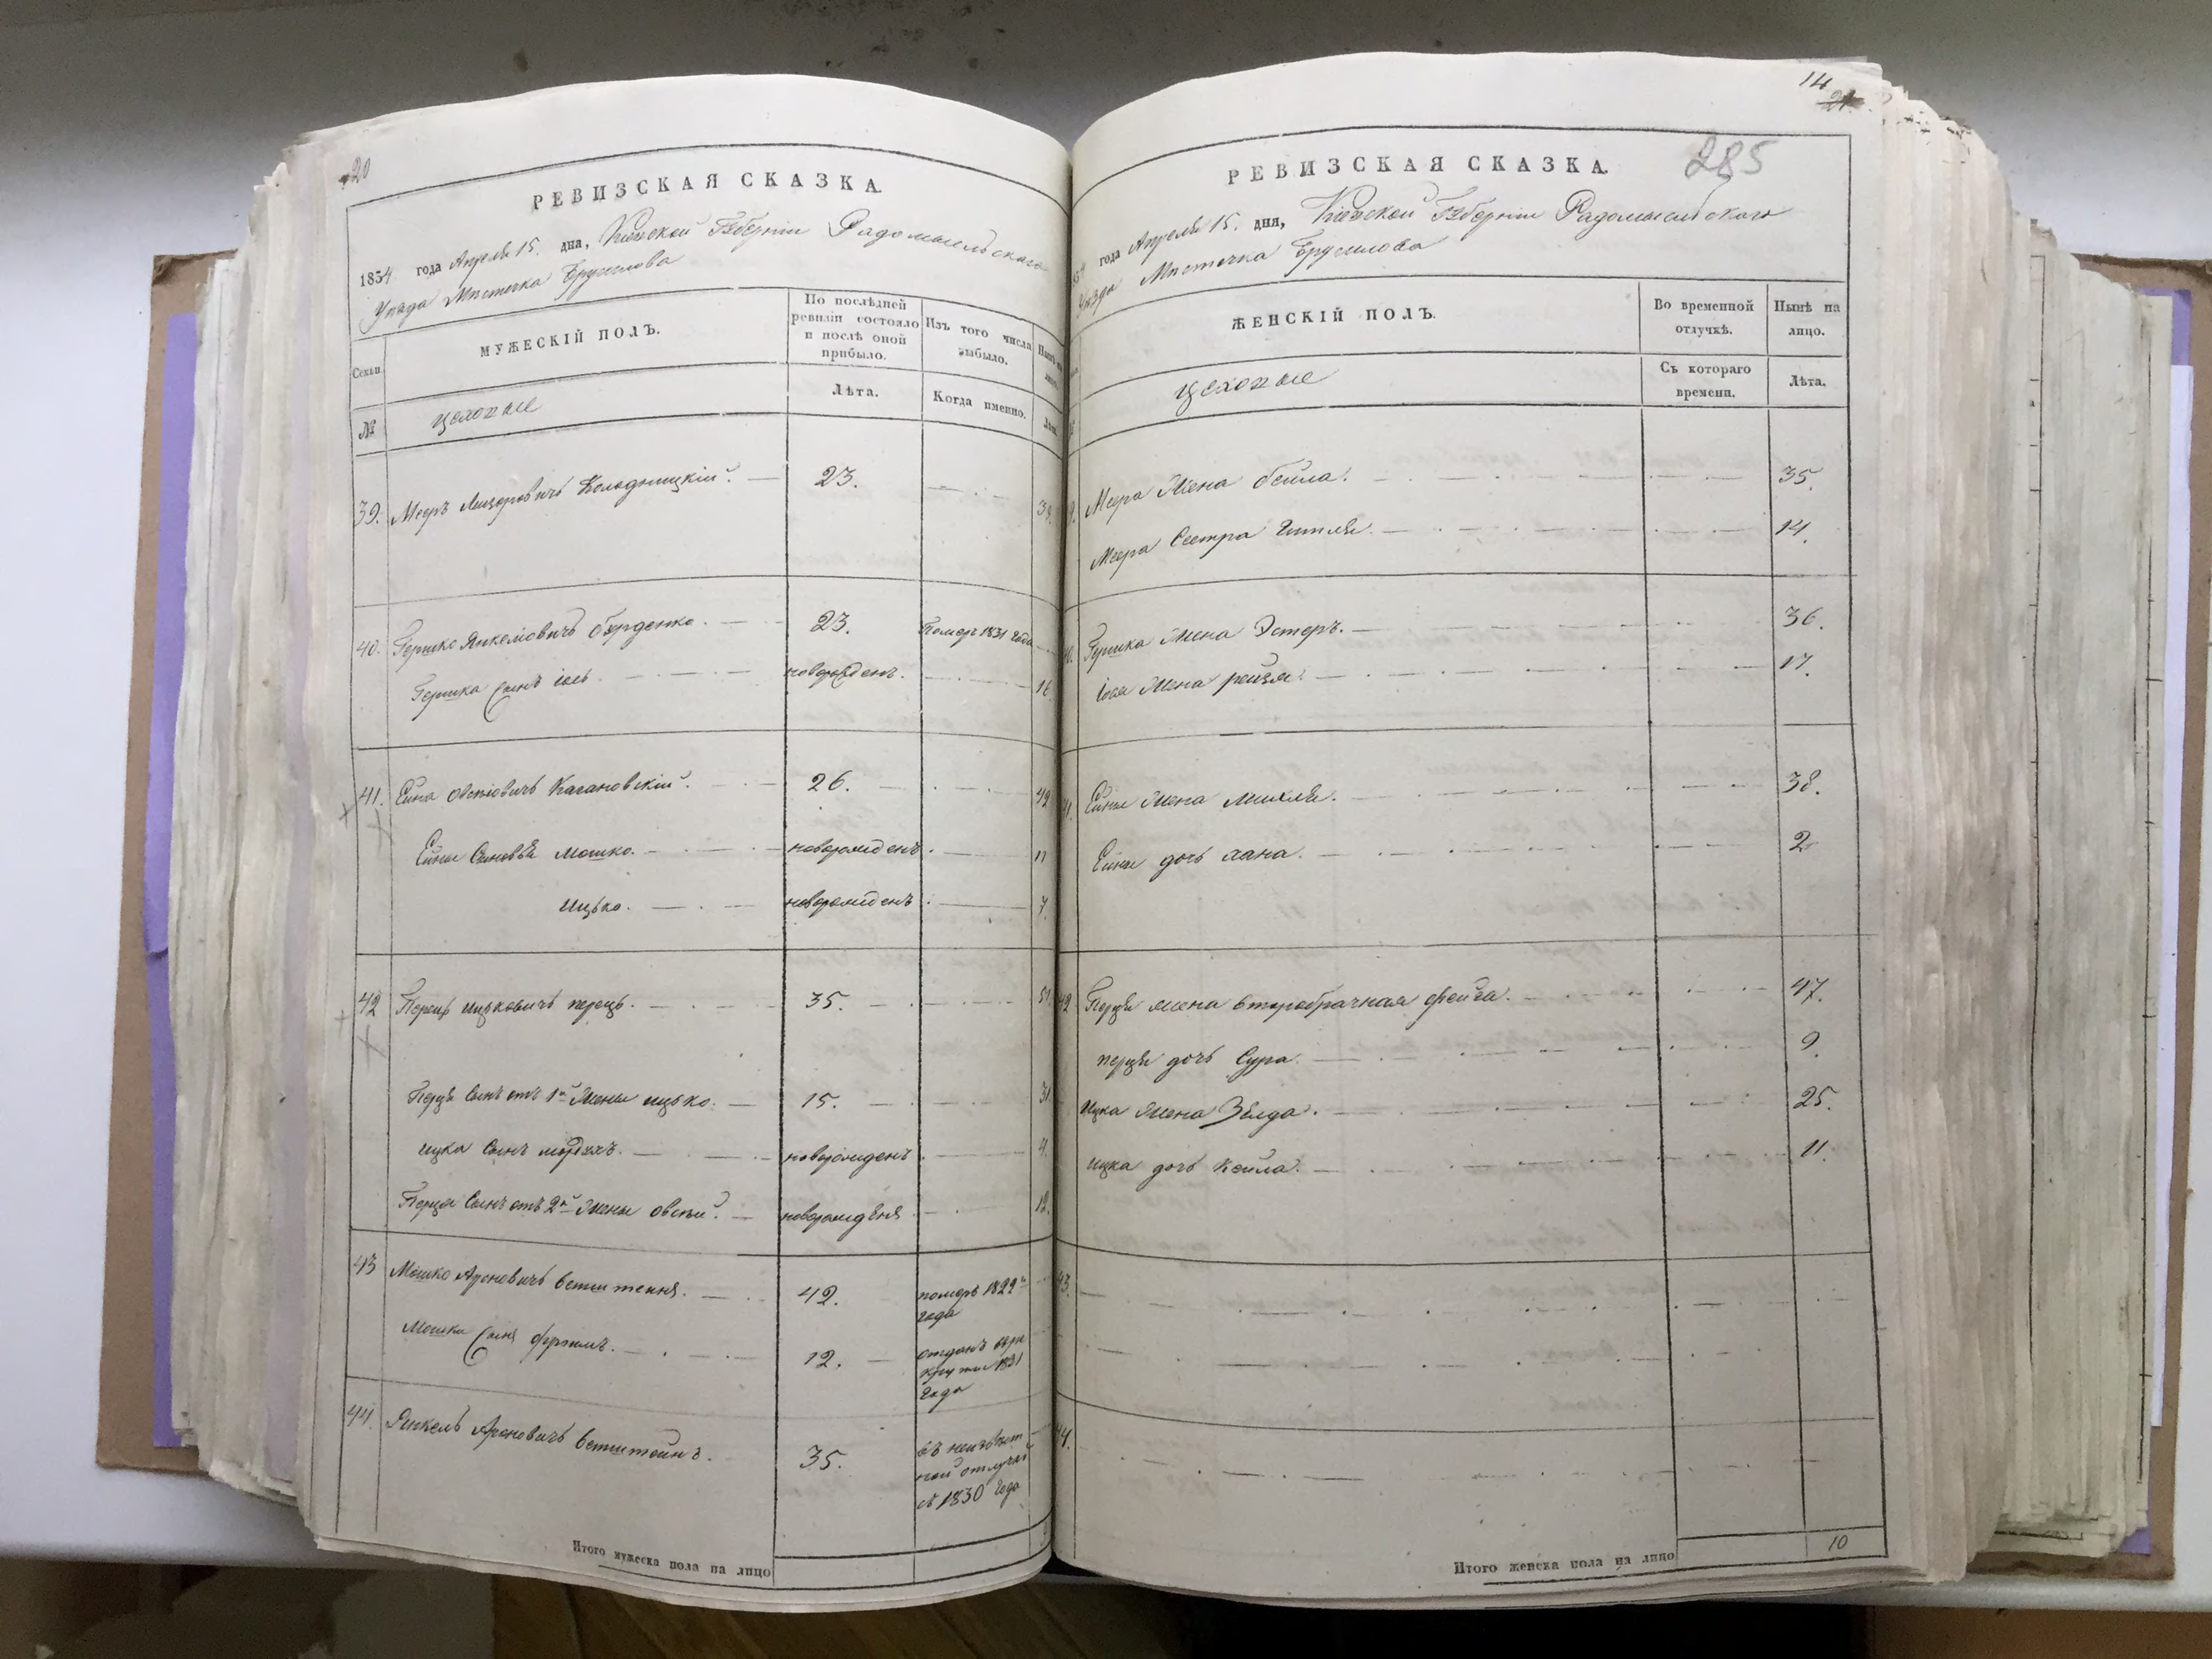 20
РЕВИЗСКАЯ СКАЗКА.
1834 года Апреля 15. дня, Кіевской Губерніи Радомысльскаго
Уезда Мистечка Брусилова
Семьи
МУЖЕСКІЙ ПОЛЪ.
По послѣдней ревизіи состояло и послѣ оной прибыло.
Изъ того числа выбыло.
№
цеховые
Лѣта.
Когда именно.
Лѣта.
39. Мееръ Лизоровичъ Колодницкій. 23.
40. Гершко Янкеліовичъ 23. Померъ 1831 года
Гершка сынъ іось. новорожденъ. 16
41. Ейна Овсіовичъ Кагановскій. 26. 42
Ейны Сыновья Мошко. новорожденъ. 11
Ицько. новорожденъ. 7.
42 Перецъ Ицьковичъ перецъ. 35. 51.
Перця Сынъ отъ 1й Жены ицько. 15. 31.
ицка Сынъ новорожденъ. 4.
Перця Сынъ отъ 2й Жены овсей. 12.
43 Мошко Ароновичъ 42. померъ 1829 года
Мошки Сынъ 12. отданъ въ рекруты 1831 года
44. Янкель Ароновичъ Ветштейнъ. 35. въ неизвестной отлучке съ 1830 года
Итого мужеска пола на лицо
14
21
285
РЕВИЗСКАЯ СКАЗКА.
года Апреля 15. дня, Кіевской Губерніи Радомысльскаго
Уезда Мистечка Брусилова
ЖЕНСКІЙ ПОЛЪ.
Во временной отлучкѣ.
Нынѣ на лицо.
цеховые
Съ котораго времени.
Лѣта.
Меера Жена бейла. 35.
Меера Сестра Гитля. 14.
Гершка Жена Эстеръ. 36.
Іося Жена рейзя. 17.
Ейны Жена Михля. 38.
Ейны дочь хана. 2
42 Перця жена второбрачная фейга. 47.
перця дочь Сура. 9.
Ицка Жена Зелда. 25.
ицка дочь Кейла. 11.
43.
44.
Итого женска пола на лицо 10